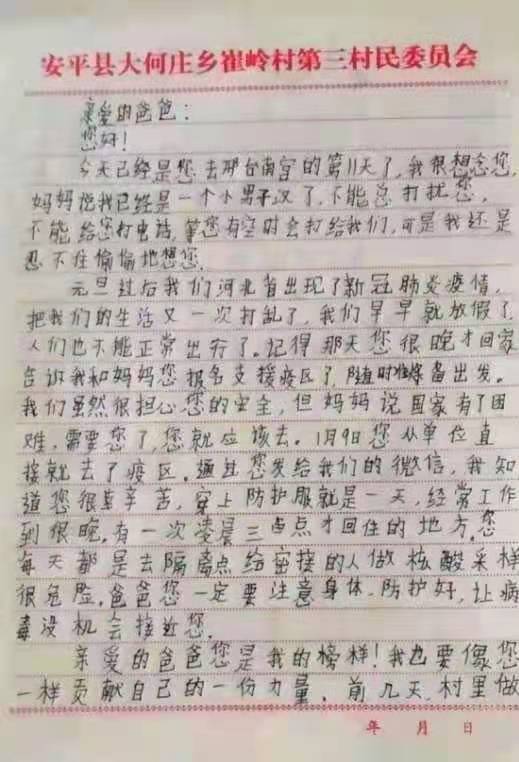 安平县大何庄乡崔岭村第三村民委员会
亲爱的爸爸:
您好!
今天已经是您去邢台南宫的第11天了,我很想念您,
妈妈说我已经是一个小男子汉了,不能总打扰您,
不能给您打电话,等您有空时会打给我们,可是我还是
忍不住偷偷地想您.
元旦过后我们河北省出现了新冠肺炎疫情,
把我们的生活又一次打乱了,我们早早就放假了
人们也不能正常出行了.记得那天您很晚才回家
告诉我和妈妈您报名支援疫区了,随时准备出发。
我们虽然很担心您的安全,但妈妈说国家有了困
难,需要您了,您就应该去。1月9日您从单位直
接就去了疫区.通过您发给我们的微信,我知
道您很辛苦,穿上防护服就是一天,经常工作
到很晚.有一次凌晨三点才回住的地方.您
每天都是去隔离点给密接的人做核酸采样
很危险.爸爸您一定要注意身体.防护好,让病
毒没机会接近您.
亲爱的爸爸您是我的榜样!我也要像您
一样贡献自己的一份力量.前几天村里做
年 月 日